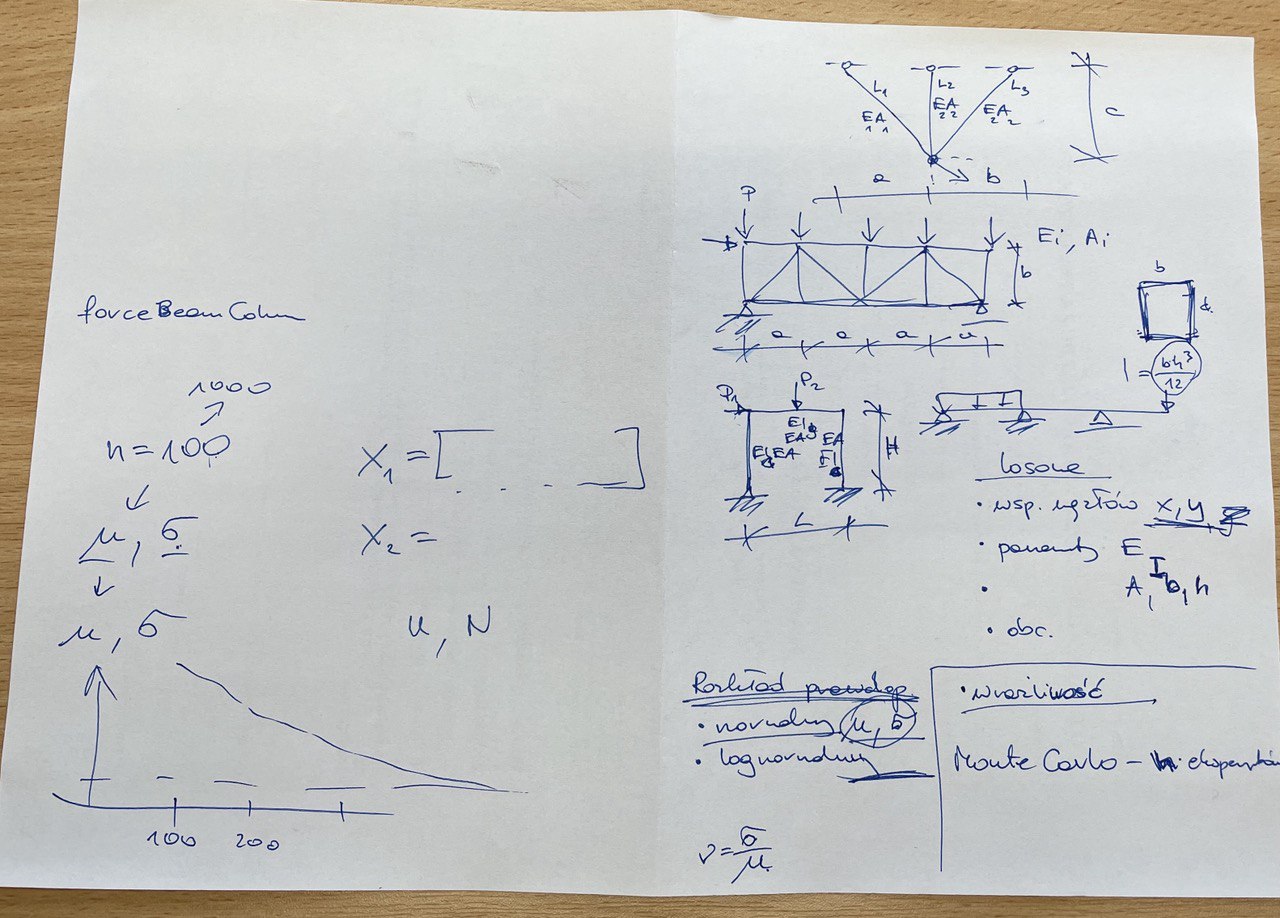 forceBeamColumn
1000
n = 100
μ, σ
μ, σ
100 200
X₁ = [ . . . ]
X₂ =
u, N
L₁ L₂ L₃
E₁A₁ E₂A₂ E₂A₂
c
a b
P
Ei, Ai
b
a a a a
b
d
I = bh³/12
P₁ P₂
EI EA EA
EI EA EI
H
L
losowe
• wsp. węzłów x, y
• parametry E
I
• A, b, h
• obc.
Rozkład prawdop
• normalny μ, σ
• lognormalny
ν = σ/μ
• wrażliwość
Monte Carlo – n